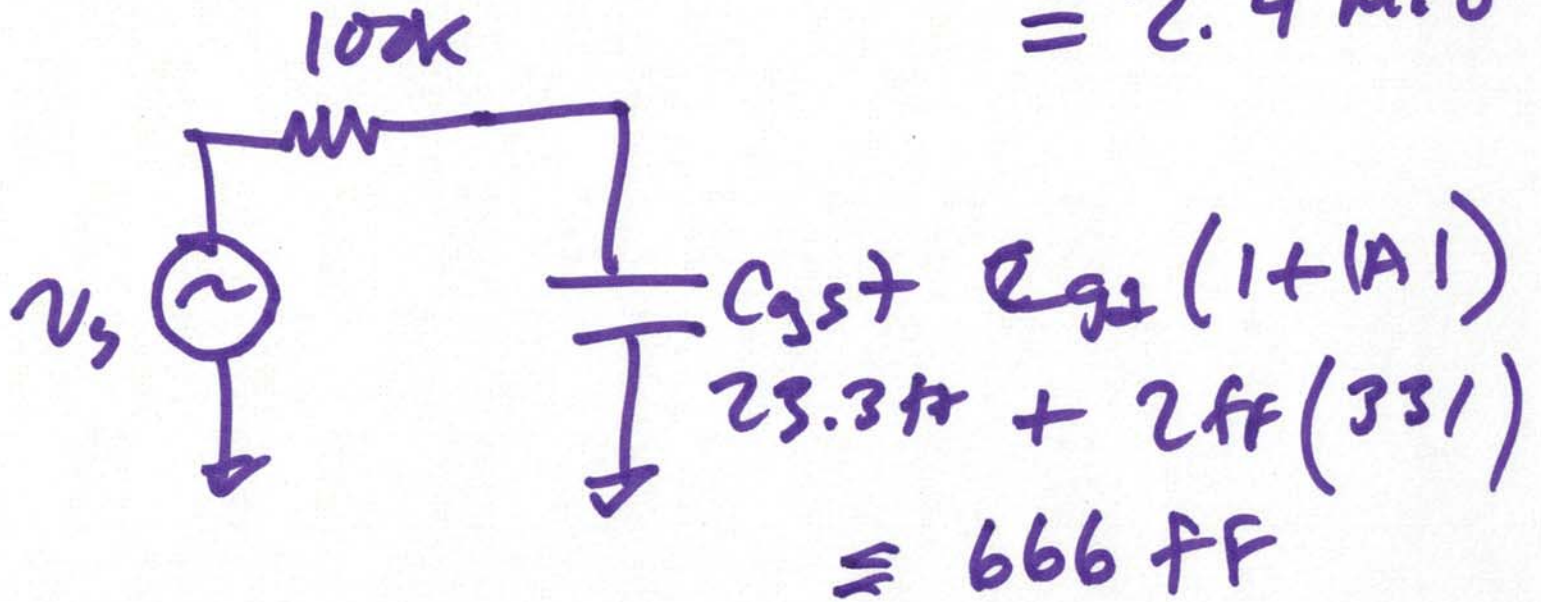 100k
= 2.4 MHz
Vs
Cgs + Cgd (1+|A|)
23.3fF + 2fF (331)
= 666 fF